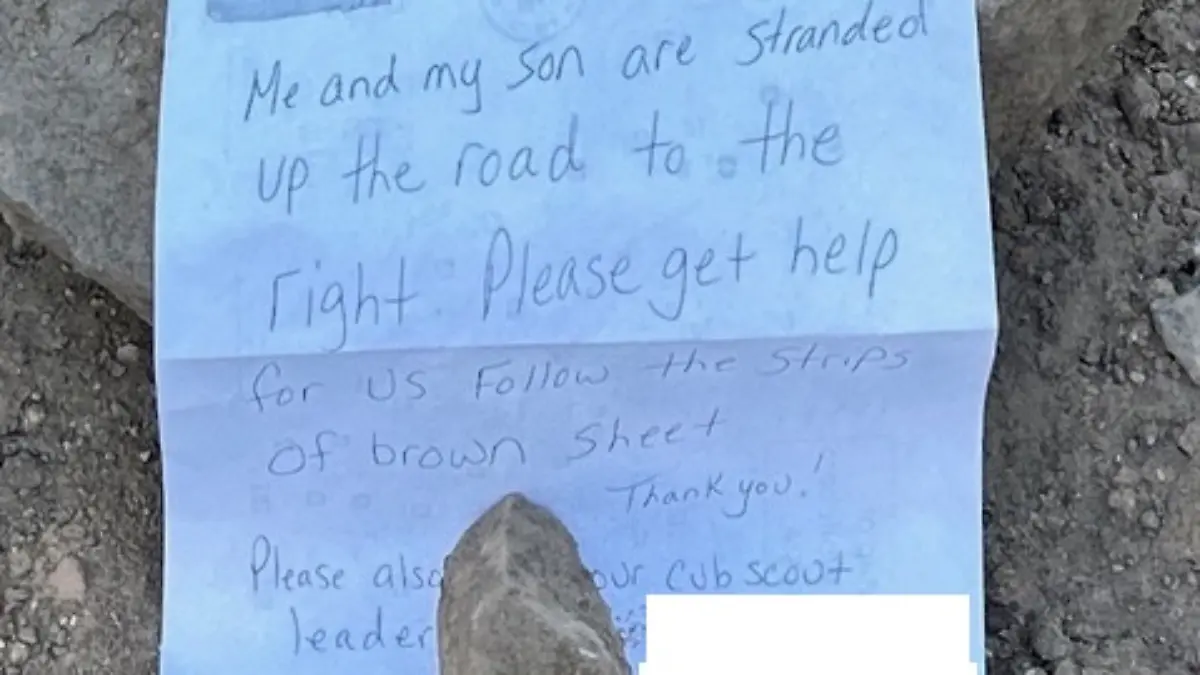 Me and my son are stranded
up the road to the
right. Please get help
for us Follow the strips
of brown sheet
Thank you!
Please also our cub scout
leader